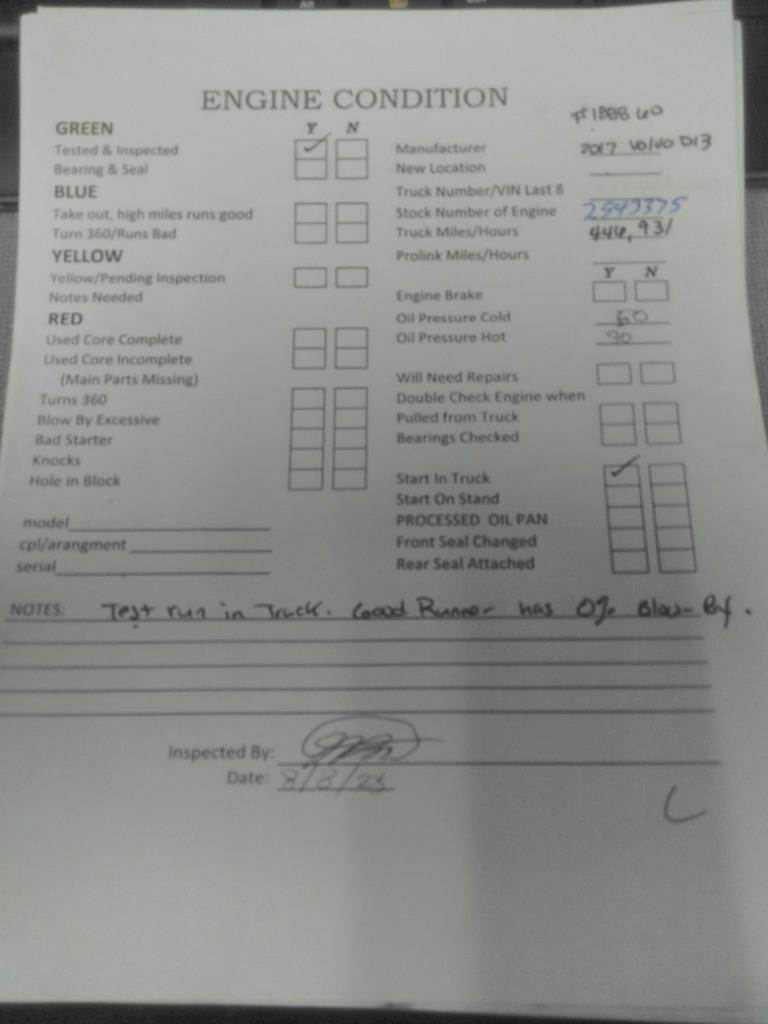 ENGINE CONDITION
GREEN Y N
Tested & Inspected
Bearing & Seal
BLUE
Take out, high miles runs good
Turn 360/Runs Bad
YELLOW
Yellow/Pending Inspection
Notes Needed
RED
Used Core Complete
Used Core Incomplete
(Main Parts Missing)
Turns 360
Blow By Excessive
Bad Starter
Knocks
Hole in Block
model
cpl/arangment
serial
Manufacturer 2017 Volvo D13
New Location
Truck Number/VIN Last 8
Stock Number of Engine 2543375
Truck Miles/Hours 446,931
Prolink Miles/Hours
Y N
Engine Brake
Oil Pressure Cold 60
Oil Pressure Hot
Will Need Repairs
Double Check Engine when
Pulled from Truck
Bearings Checked
Start In Truck
Start On Stand
PROCESSED OIL PAN
Front Seal Changed
Rear Seal Attached
NOTES: Test run in Truck. Good Runner has 0% Blow-By.
Inspected By:
Date: 8/8/23